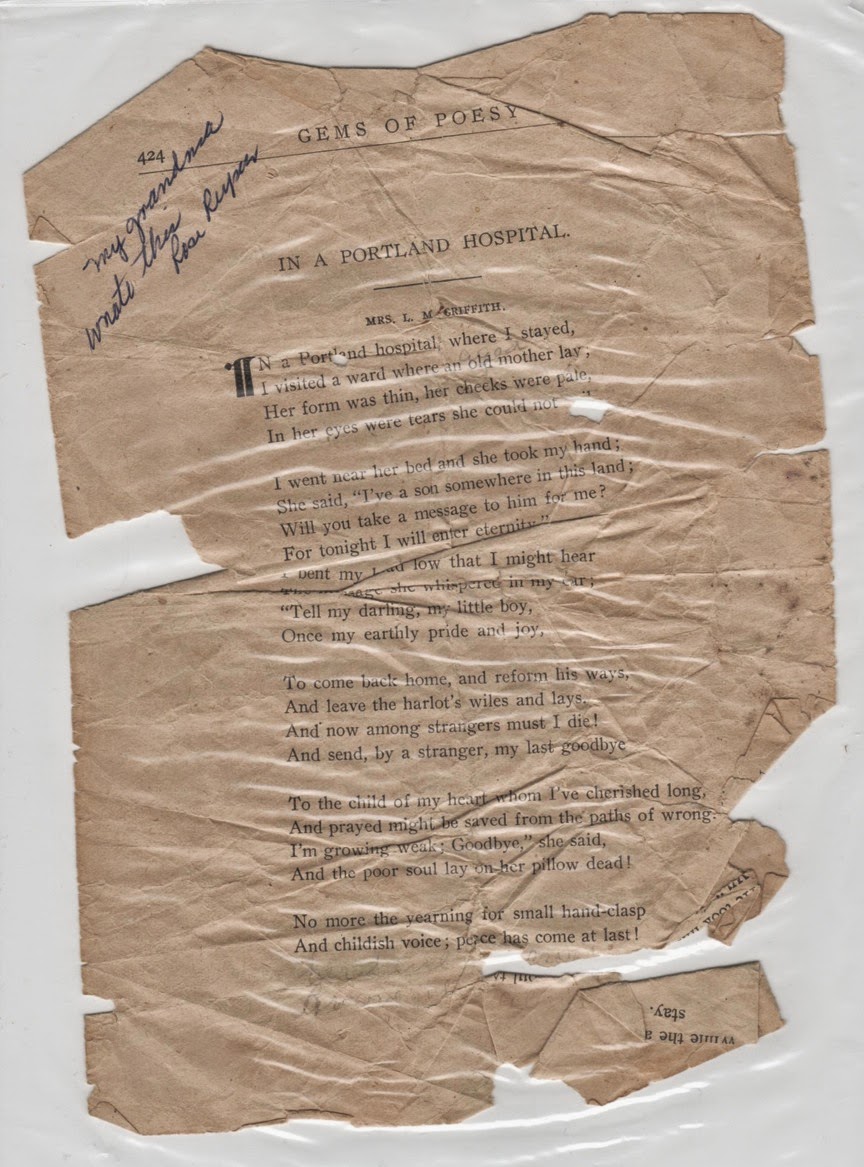 424
GEMS OF POESY
my grandma
wrote this
Rose
IN A PORTLAND HOSPITAL.
MRS. L. M. GRIFFITH.
IN a Portland hospital, where I stayed,
I visited a ward where an old mother lay;
Her form was thin, her cheeks were pale,
In her eyes were tears she could not
I went near her bed and she took my hand;
She said, "I've a son somewhere in this land;
Will you take a message to him for me?
For tonight I will enter eternity."
I bent my head low that I might hear
The message she whispered in my ear;
"Tell my darling, my little boy,
Once my earthly pride and joy,
To come back home, and reform his ways,
And leave the harlot's wiles and lays.
And now among strangers must I die!
And send, by a stranger, my last goodbye
To the child of my heart whom I've cherished long,
And prayed might be saved from the paths of wrong.
I'm growing weak; Goodbye," she said,
And the poor soul lay on her pillow dead!
No more the yearning for small hand-clasp
And childish voice; peace has come at last!
stay.
While the a